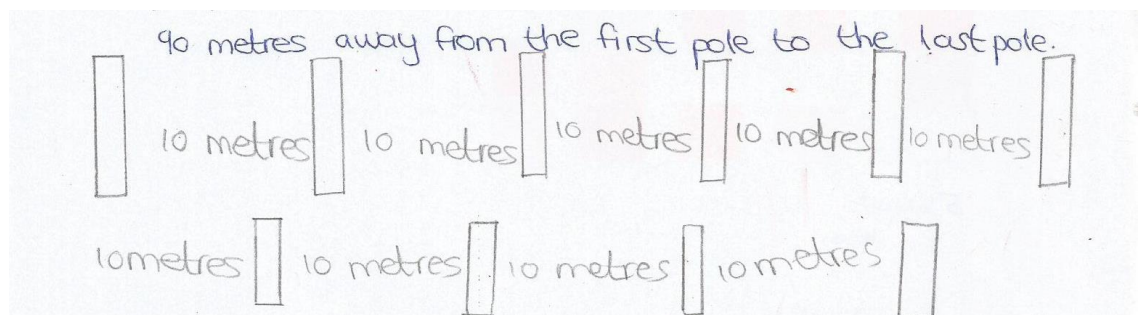 90 metres away from the first pole to the last pole.
10 metres 10 metres 10 metres 10 metres 10 metres
10metres 10 metres 10 metres 10 metres